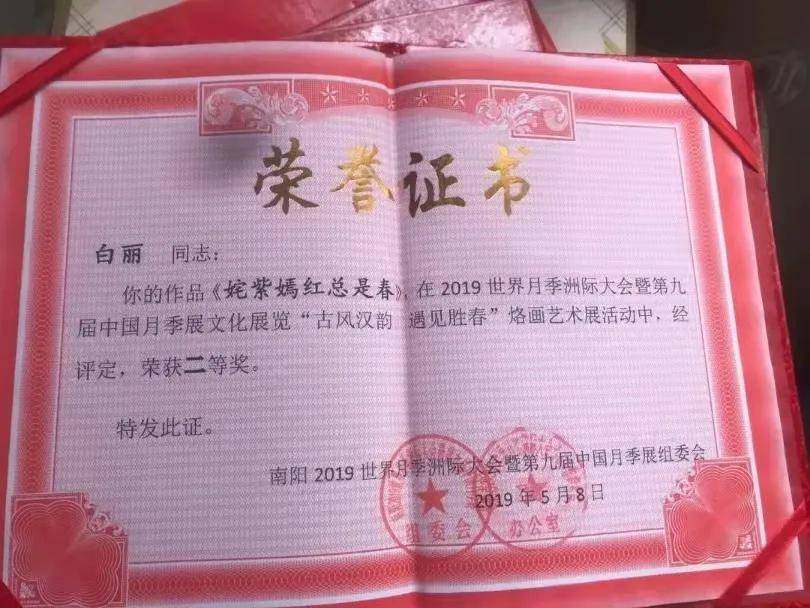 荣誉证书
白丽 同志：
你的作品《姹紫嫣红总是春》，在 2019 世界月季洲际大会暨第九
届中国月季展文化展览“古风汉韵 遇见胜春”烙画艺术展活动中，经
评定，荣获二等奖。
特发此证。
南阳 2019 世界月季洲际大会暨第九届中国月季展组委会
2019 年 5 月 8 日
组委会
办公室